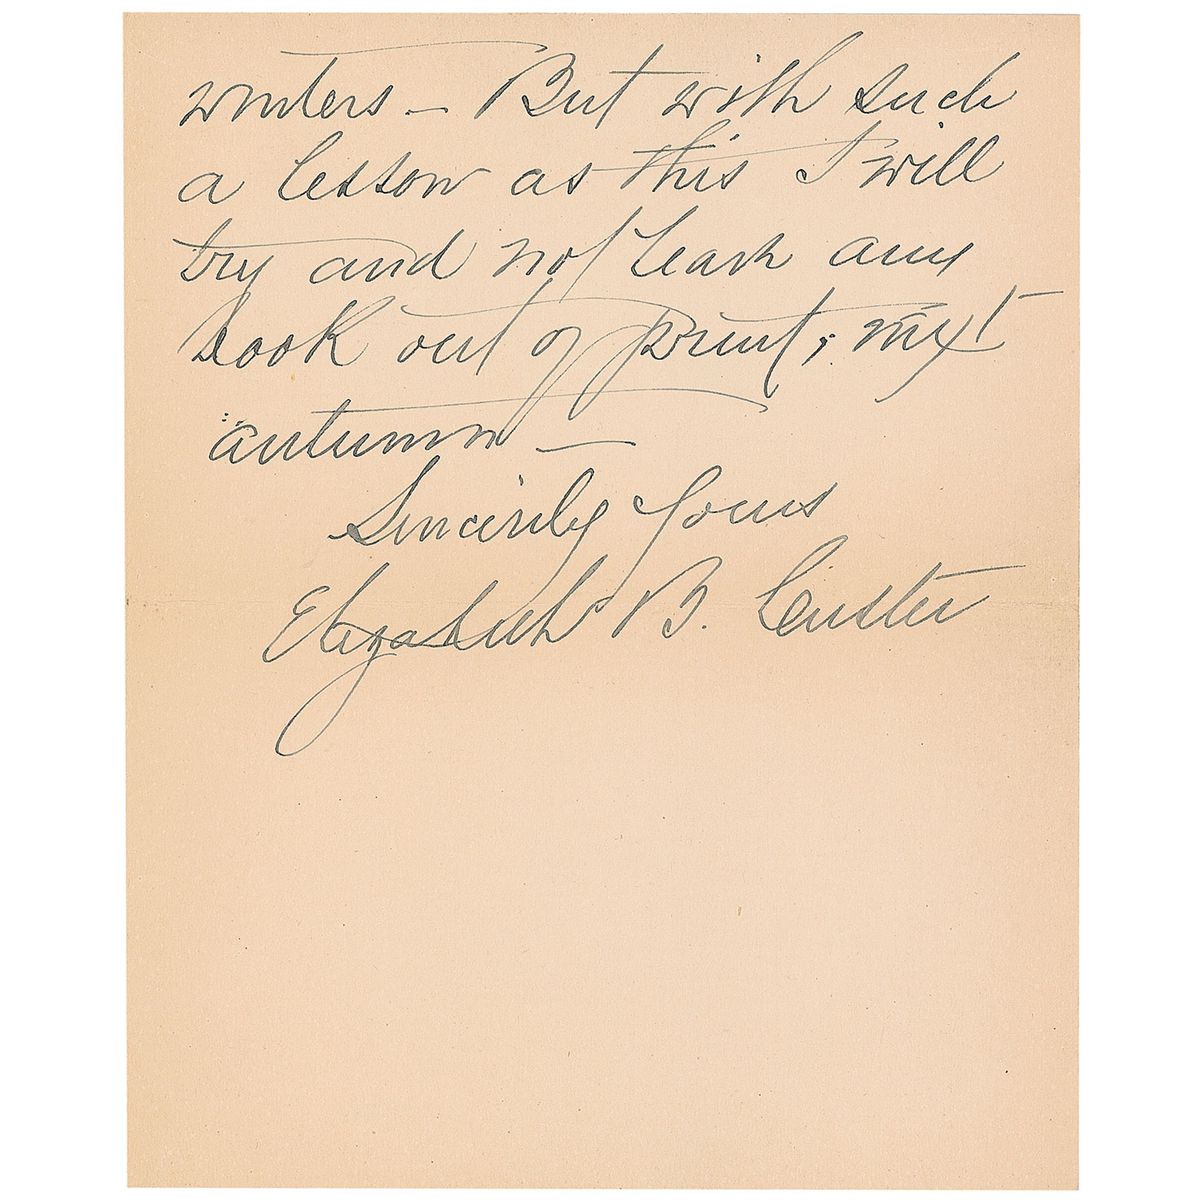 winters — But with such
a lesson as this I will
try and not leave any
book out of print, next
autumn —
Sincerely Yours
Elizabeth B. Custer